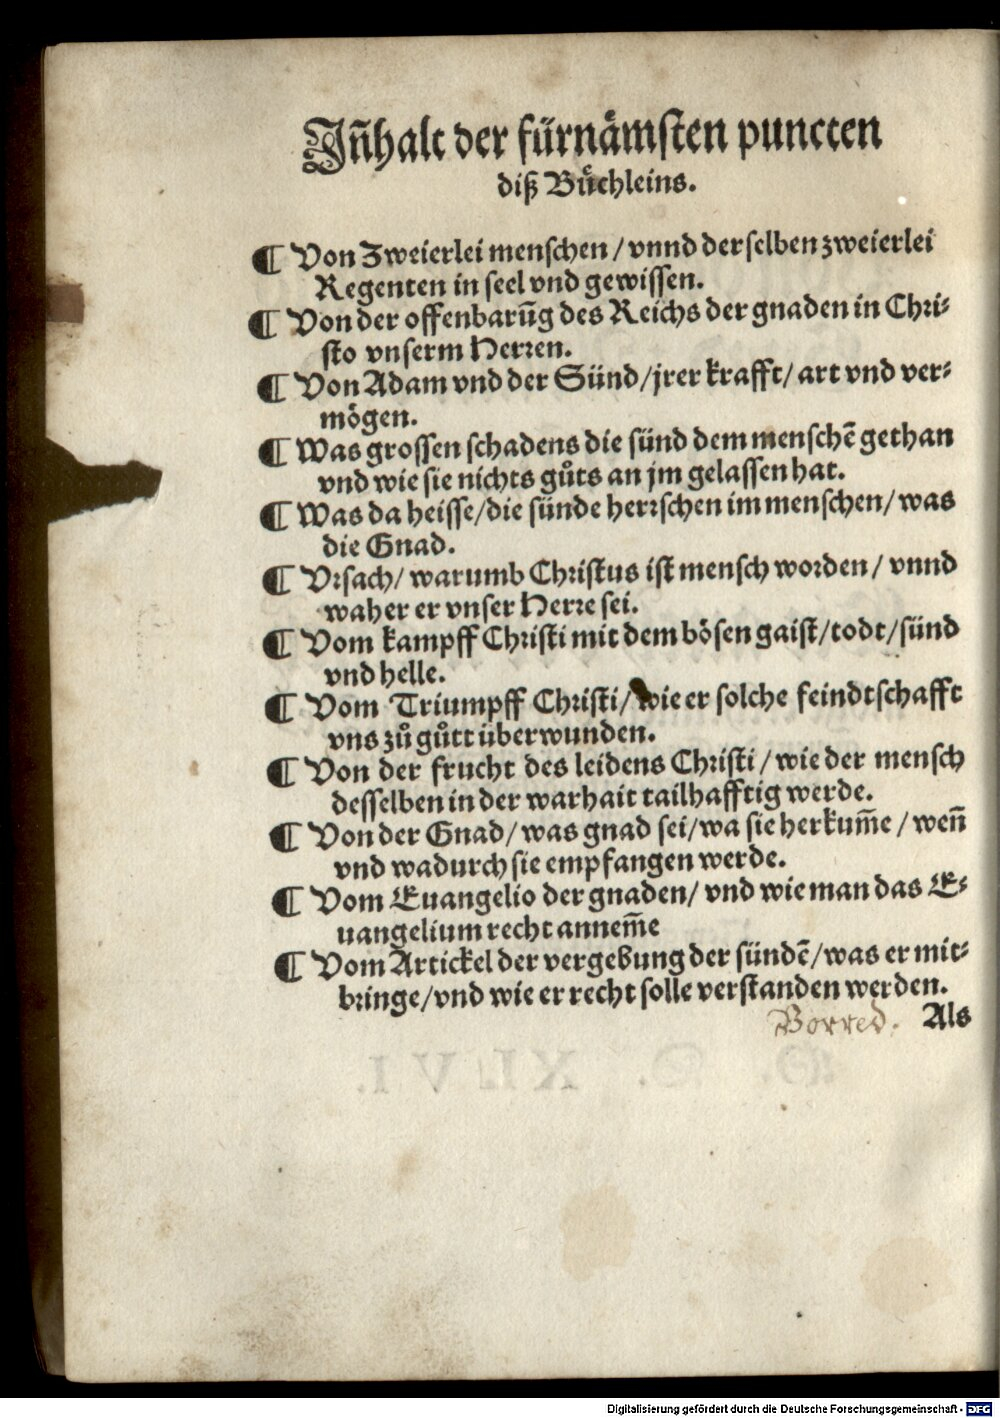 Jñhalt der fürnämsten puncten
diß Büchleins.
¶ Von Zweierlei menschen / vnnd derselben zweierlei
Regenten in seel vnd gewissen.
¶ Von der offenbarũg des Reichs der gnaden in Chri-
sto vnserm Herren.
¶ Von Adam vnd der Sünd / jrer krafft / art vnd ver-
mögen.
¶ Was grossen schadens die sünd dem menschẽ gethan
vnd wie sie nichts gůts an jm gelassen hat.
¶ Was da heisse / die sünde herrschen im menschen / was
die Gnad.
¶ Vrsach / warumb Christus ist mensch worden / vnnd
waher er vnser Herre sei.
¶ Vom kampff Christi mit dem bösen gaist / todt / sünd
vnd helle.
¶ Vom Triumpff Christi / wie er solche feindtschafft
vns zů gůtt überwunden.
¶ Von der frucht des leidens Christi / wie der mensch
desselben in der warhait tailhafftig werde.
¶ Von der Gnad / was gnad sei / wa sie herkum̃e / wen̄
vnd wadurch sie empfangen werde.
¶ Vom Euangelio der gnaden / vnd wie man das E-
uangelium recht annem̃e
¶ Vom Artickel der vergebung der sündẽ / was er mit-
bringe / vnd wie er recht solle verstanden werden.
Vorred. Als
Digitalisierung gefördert durch die Deutsche Forschungsgemeinschaft - DFG